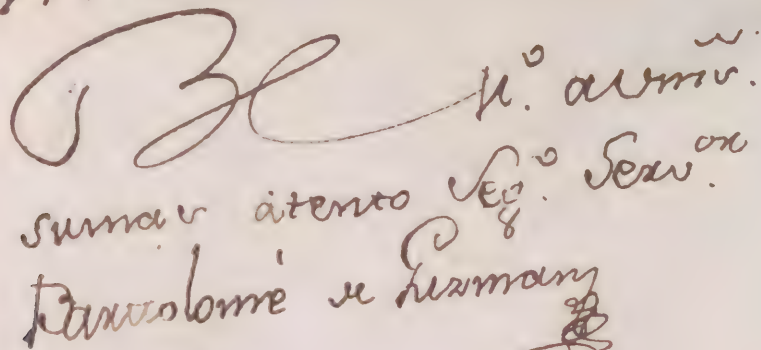 B L
su mas atento Seg.º Serv.or
Bartolomé de Guzman